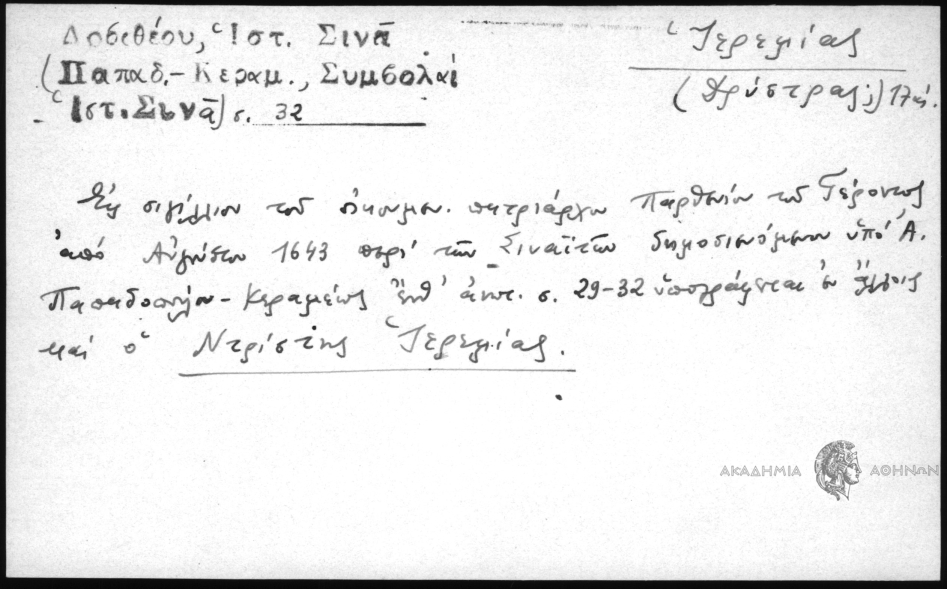 Δοσιθέου, Ἱστ. Σινᾶ
(Παπαδ.-Κεραμ., Συμβολαί
Ἱστ. Σινᾶ) σ. 32
Ἱερεμίας
(Δρύστρας;) 17 αἰ.
Εἰς σιγίλλιον τοῦ οἰκουμεν. πατριάρχου Παρθενίου τοῦ Γέροντος
ἀπό Αὐγούστου 1643 περί τῶν Σιναϊτῶν δημοσιευόμενον ὑπό Ἀ.
Παπαδοπούλου-Κεραμέως ἔνθ' ἀνωτ. σ. 29-32 ὑπογράφεται ἐν ἄλλοις
καί ὁ Ντρίστης Ἱερεμίας.
ΑΚΑΔΗΜΙΑ ΑΘΗΝΩΝ